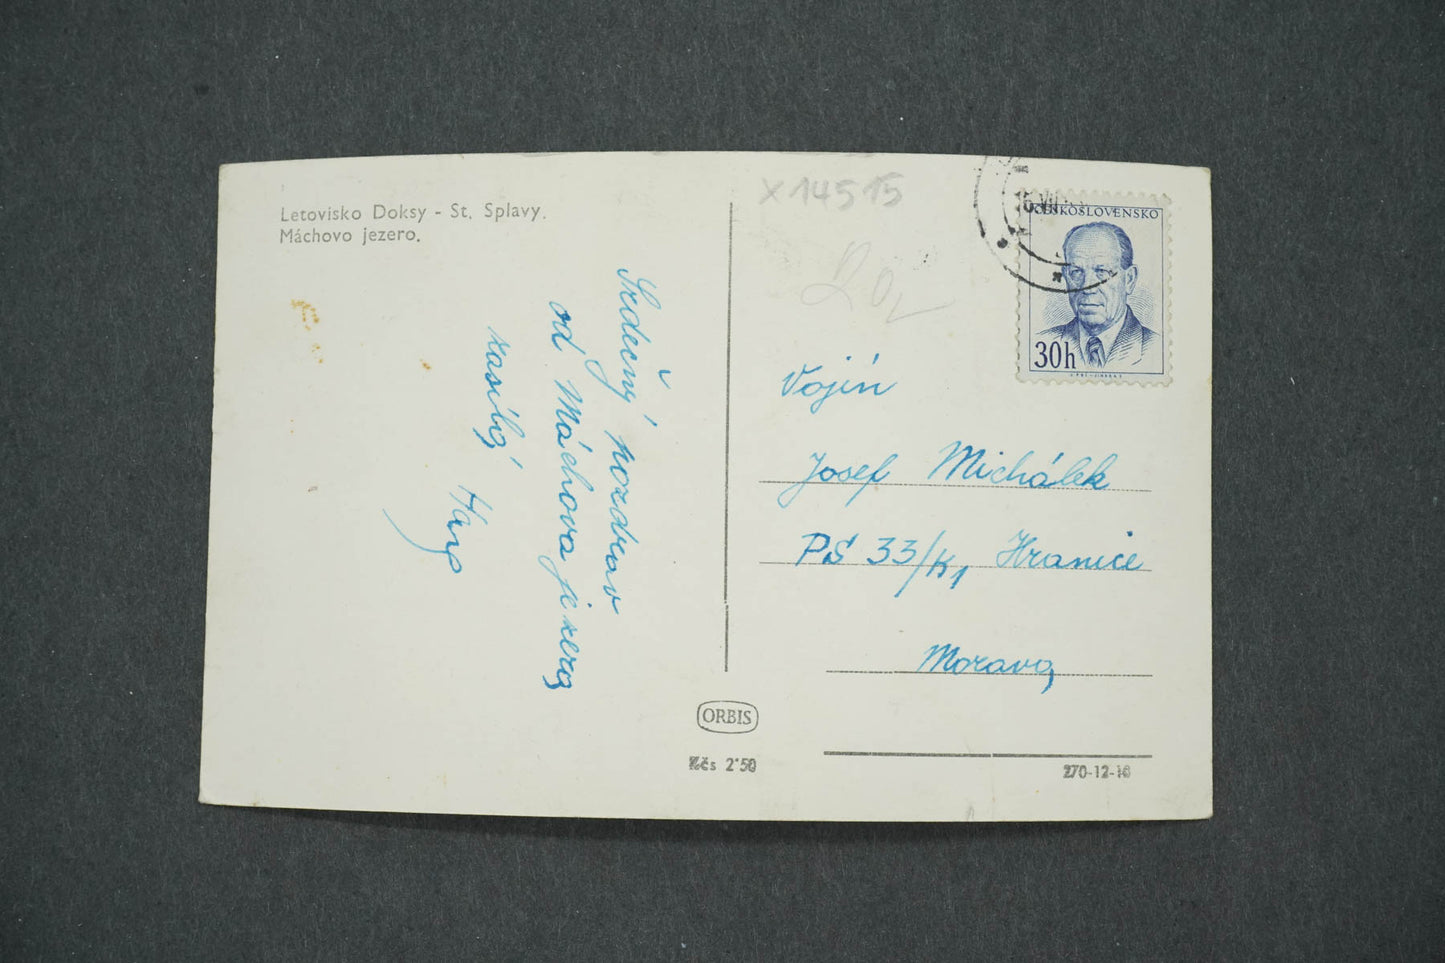 Letovisko Doksy - St. Splavy.
Máchovo jezero.
Srdečný pozdrav
od Máchova jezera
zasílá
X14515
ČESKOSLOVENSKO
30h
Vojín
Josef Michálek
PŠ 33/K1 Hranice
Morava
ORBIS
Kčs 2·50
270-12-16